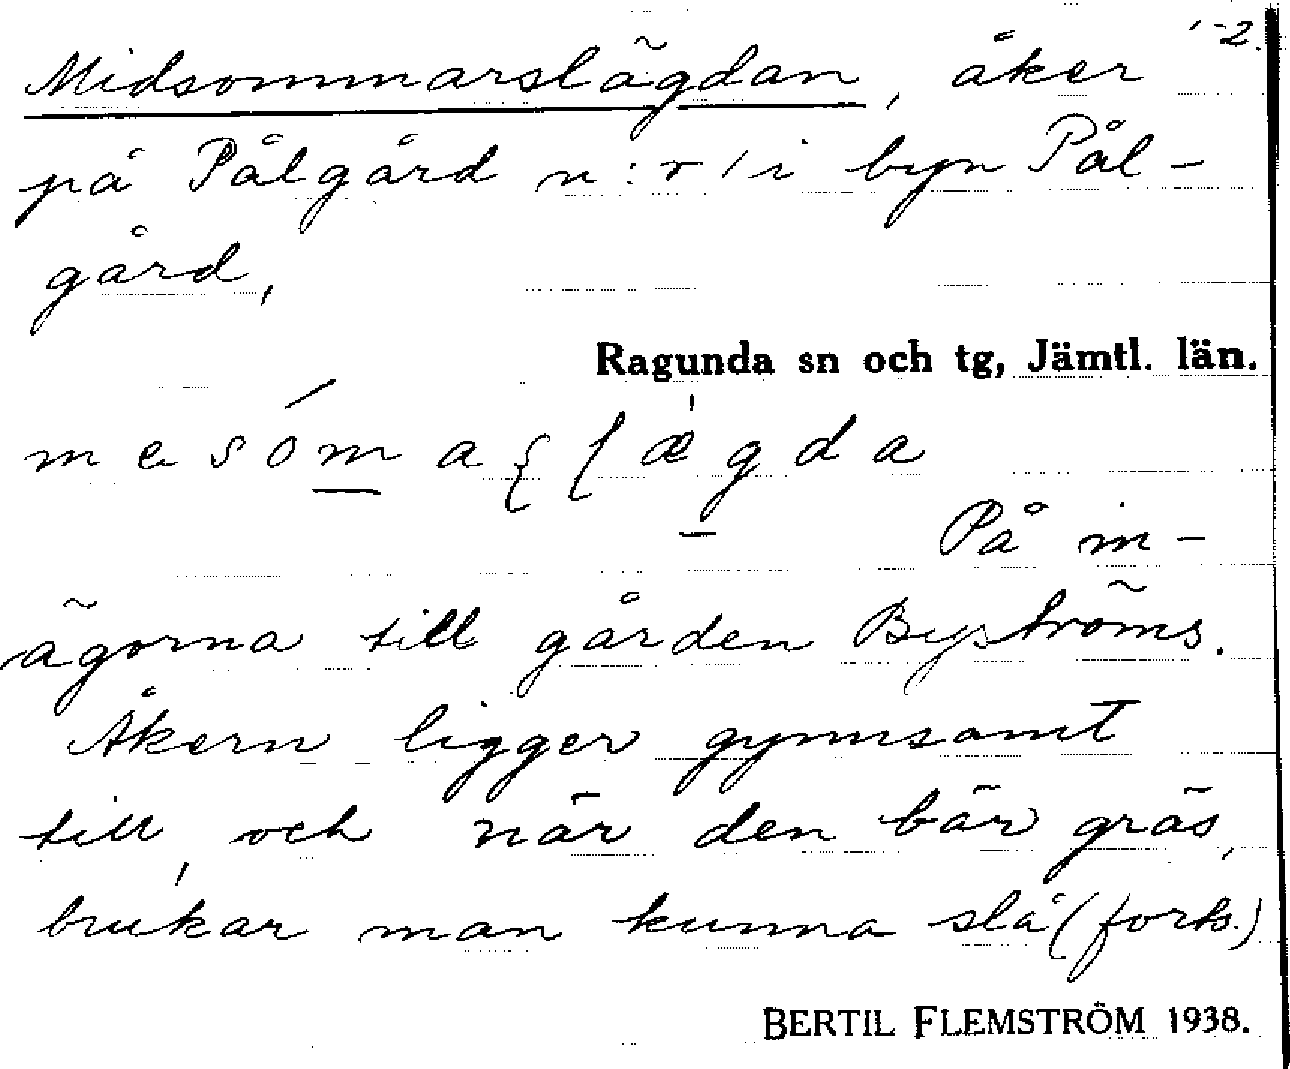 1-2.
Midsommarslägdan, åker
på Pålgård n:r 1 i byn Pål-
gård,
Ragunda sn och tg, Jämtl. län.
mesómaʂlægda
På in-
ägorna till gården Byströms.
Åkern ligger gynnsamt
till, och när den bär gräs,
brukar man kunna slå (forts.)
BERTIL FLEMSTRÖM 1938.